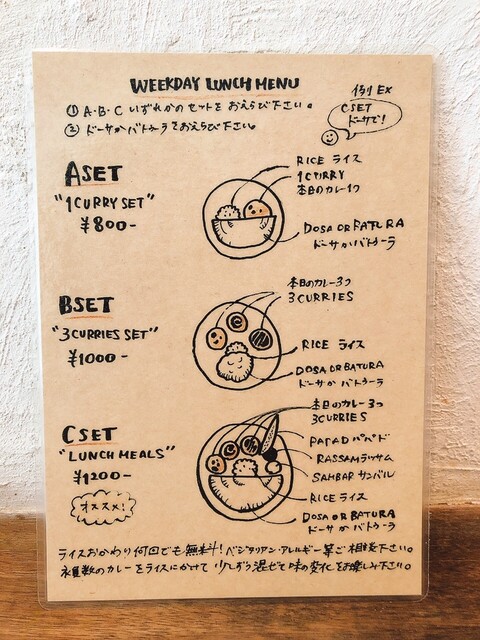 WEEKDAY LUNCH MENU
① A・B・C いずれかのセットを おえらび下さい。
② ドーサかバトゥーラをおえらび下さい。
例 Ex
CSET
ドーサで!
A SET
"1 CURRY SET"
¥800-
RICE ライス
1 CURRY
本日のカレー1つ
DOSA OR BATURA
ドーサか バトゥーラ
B SET
"3 CURRIES SET"
¥1000-
本日のカレー3つ
3CURRIES
RICE ライス
DOSA OR BATURA
ドーサか バトゥーラ
C SET
"LUNCH MEALS"
¥1200-
オススメ!
本日のカレー3つ
3CURRIES
PAPAD パパド
RASSAM ラッサム
SAMBAR サンバル
RICE ライス
DOSA OR BATURA
ドーサか バトゥーラ
ライスおかわり何回でも無料! ベジタリアン・アレルギー等ご相談下さい。
複数のカレーをライスにかけて 少しずつ混ぜて味の変化をお楽しみ下さい。